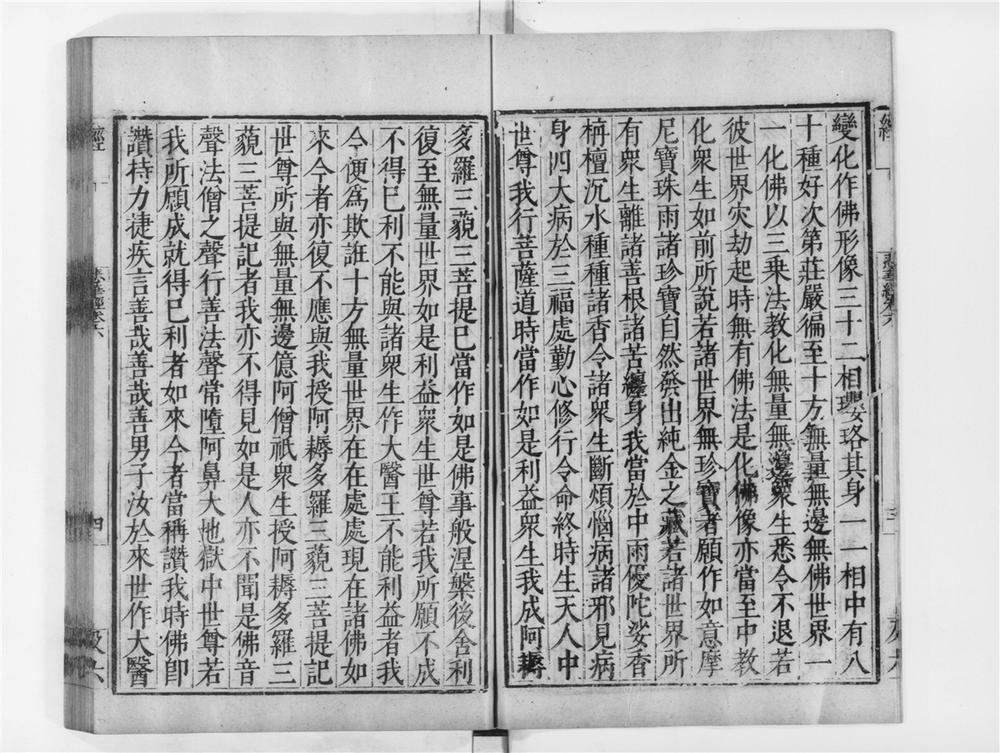 變化作佛形像三十二相瓔珞其身一一相中有八
十種好次第莊嚴徧至十方無量無邊無佛世界一
一化佛以三乘法教化無量無邊衆生悉令不退若
彼世界灾劫起時無有佛法是化佛像亦當至中教
化衆生如前所說若諸世界無珍寶者願作如意摩
尼寶珠雨諸珍寶自然發出純金之藏若諸世界所
有衆生離諸善根諸苦纏身我當於中雨優陀娑香
栴檀沉水種種諸香令諸衆生斷煩惱病諸邪見病
身四大病於三福處勤心修行令命終時生天人中
世尊我行菩薩道時當作如是利益衆生我成阿耨
多羅三藐三菩提已當作如是佛事般涅槃後舍利
復至無量世界如是利益衆生世尊若我所願不成
不得已利不能與諸衆生作大醫王不能利益者我
今便爲欺誑十方無量世界在在處處現在諸佛如
來今者亦復不應與我授阿耨多羅三藐三菩提記
世尊所與無量無邊億阿僧祇衆生授阿耨多羅三
藐三菩提記者我亦不得見如是人亦不聞是佛音
聲法僧之聲行善法聲常墮阿鼻大地獄中世尊若
我所願成就得已利者如來今者當稱讚我時佛卽
讚持力捷疾言善哉善哉善男子汝於來世作大醫
經
悲華經卷六
四